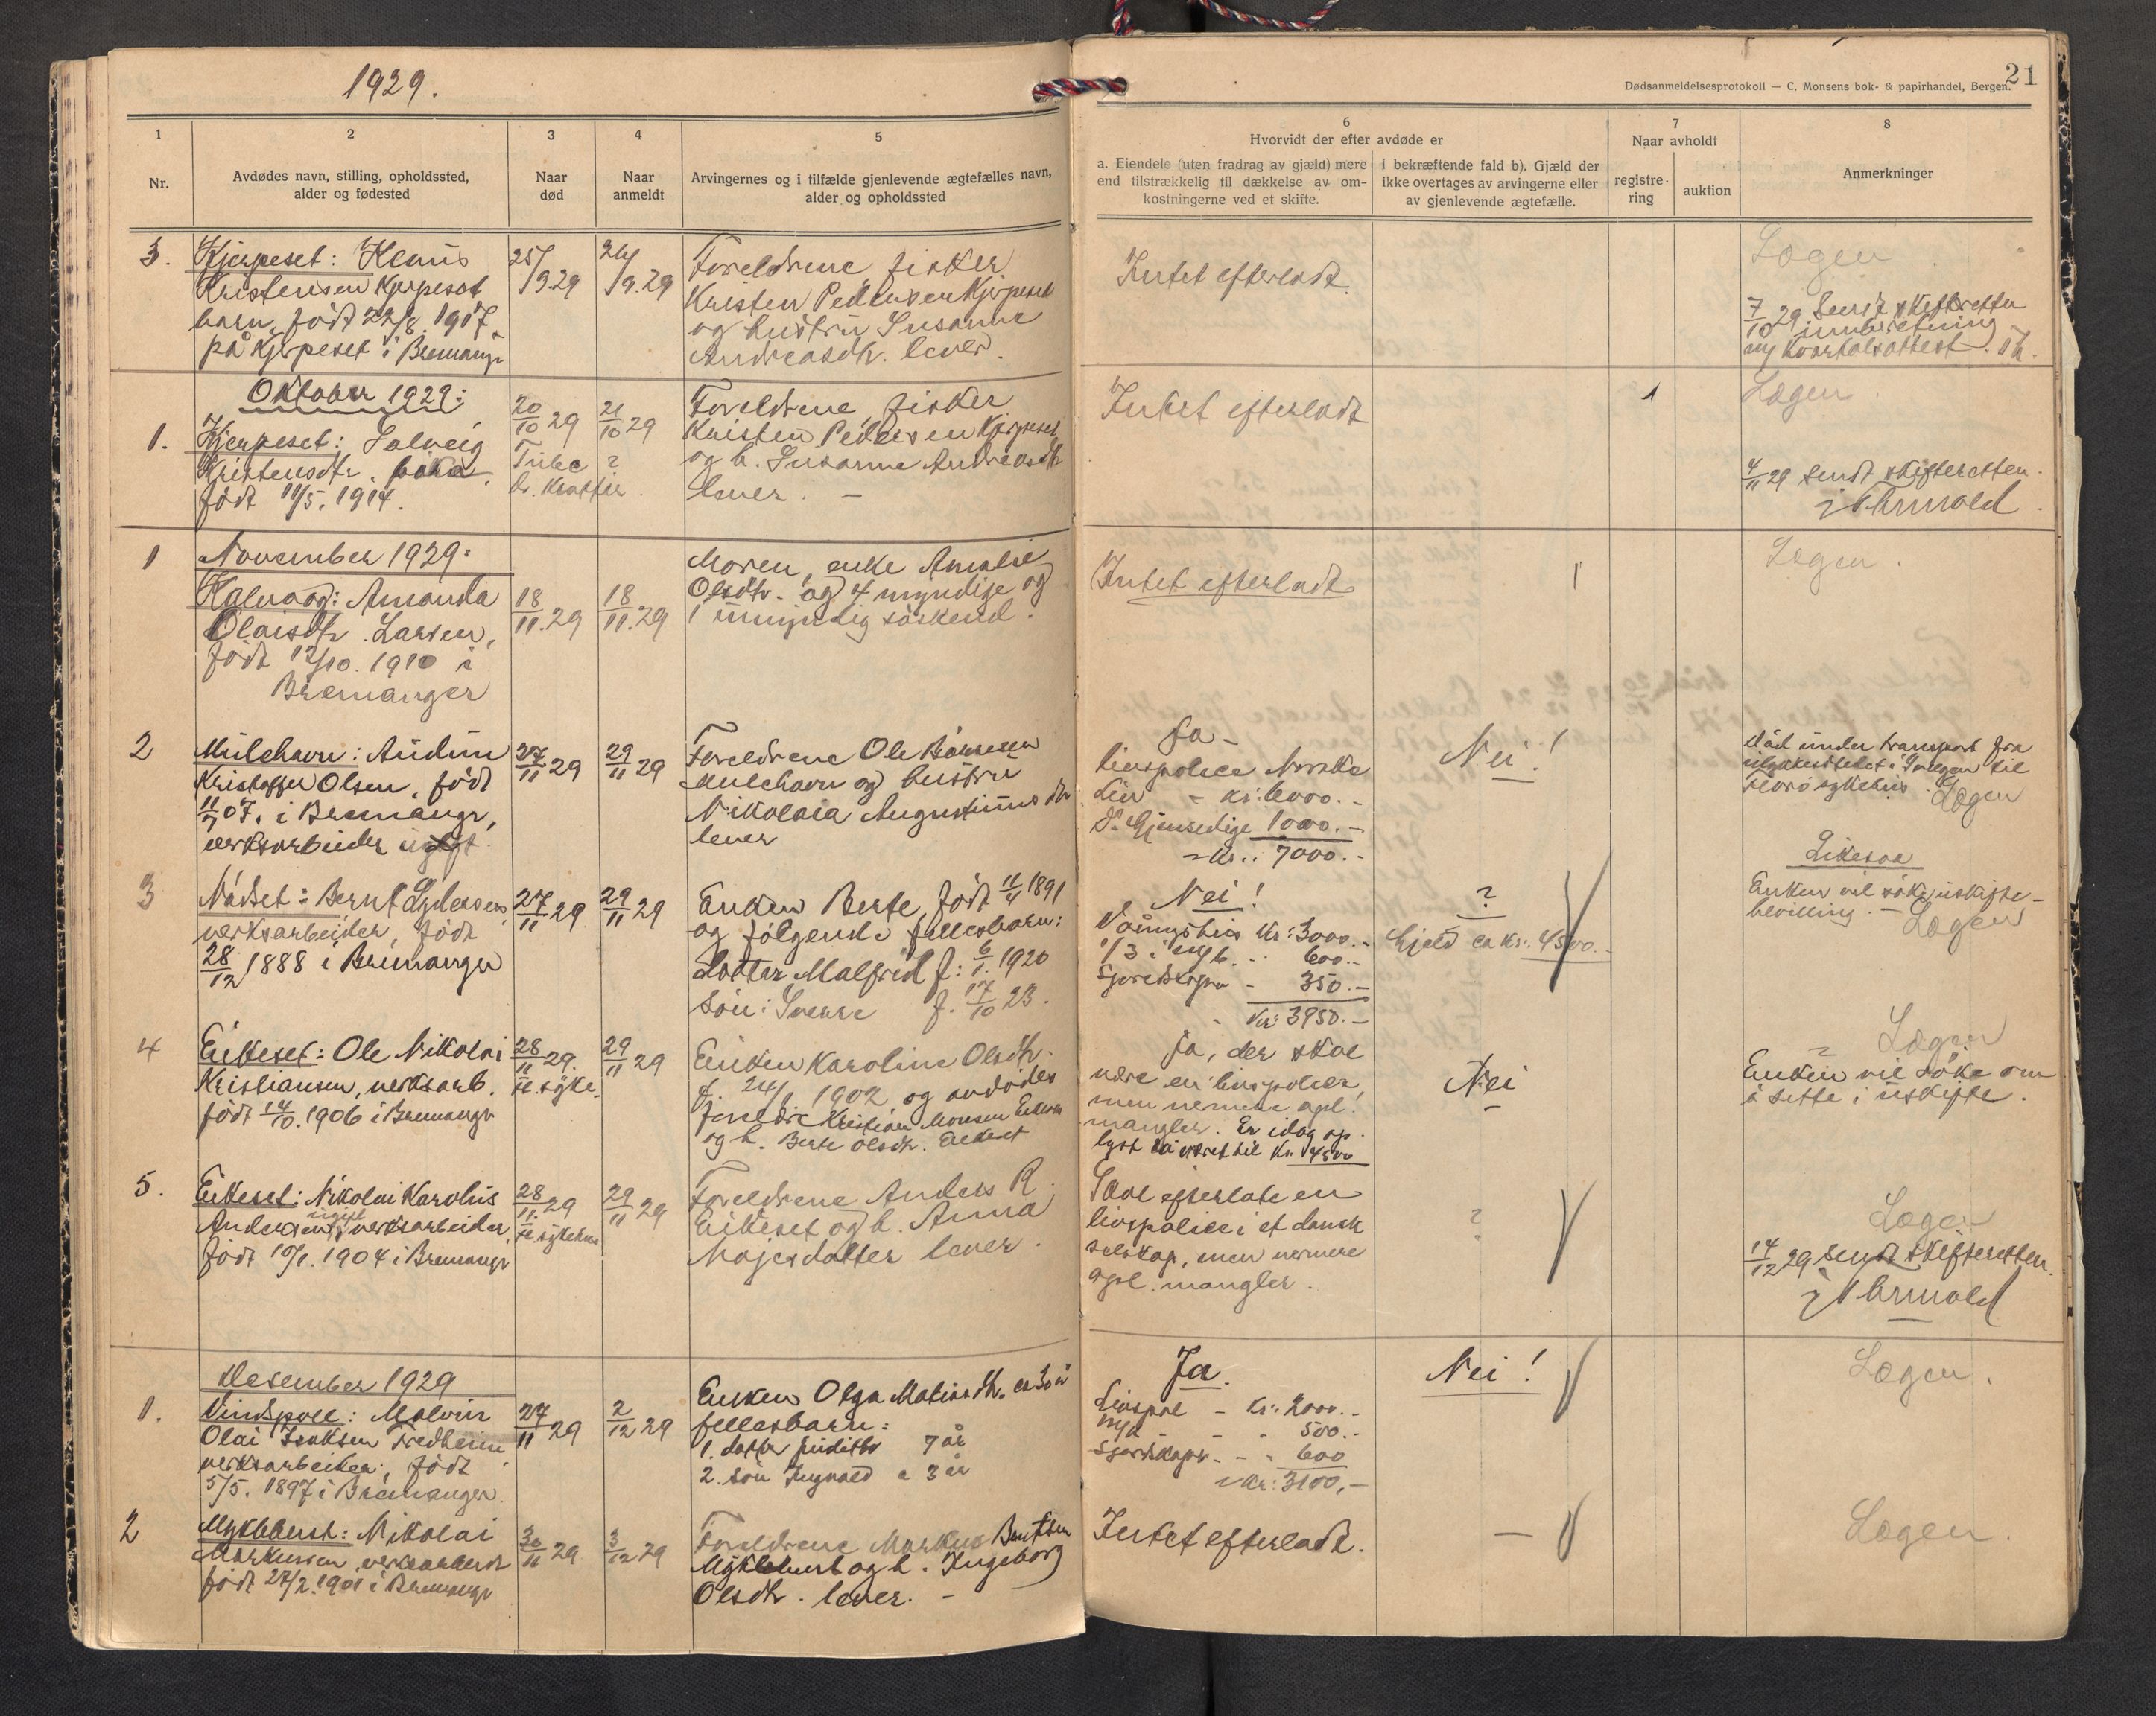 1929.
21
Dødsanmeldelsesprotokoll — C. Monsens bok- & papirhandel, Bergen.
1
2
3
4
5
6
7
8
Nr.
Avdødes navn, stilling, opholdssted,
alder og fødested
Naar
død
Naar
anmeldt
Arvingernes og i tilfælde gjenlevende ægtefælles navn,
alder og opholdssted
Hvorvidt der efter avdøde er
a. Eiendele (uten fradrag av gjæld) mere
end tilstrækkelig til dækkelse av om-
kostningerne ved et skifte.
i bekræftende fald b). Gjæld der
ikke overtages av arvingerne eller
av gjenlevende ægtefælle.
Naar avholdt
registre-
ring
auktion
Anmerkninger
3.
Kjerpeset: Klaus
Kristensen Kjerpeset
barn, født 22/8. 1917.
på Kjerpeset i Bremangr
25/9.29
26/9.29
Foreldrene fisker
Kristen Pedersen Kjerpeset
og hustru Susanne
Andreasdtr. lever.
Intet efterladt.
Logen
7/10 29 Sendt skifteretten
innberetning
m/ Kvartalsattest.
Oktober 1929:
1.
Kjerpeset: Solveig
Kristensdtr.
født 11/5. 1914.
20/10 29
21/10 29
Foreldrene, fisker
Kristen Pedersen Kjerpeset
og h. Susanne Andreasdtr
lever. —
Intet efterladt
1
Logen
4/11 29 sendt skifteretten.
November 1929:
1
Kalvaag: Amanda
Olaisdtr. Larsen,
født 12/10. 1910 i
Bremanger
18/11.29
18/11.29
Moren, enke Amalie
Olsdtr. og 4 myndige og
1 umyndig søskend.
Intet efterladt
1
Logen.
2
Mulehavn: Audun
Kristoffer Olsen, født
i Bremangr,
verksarbeider ugift.
27/11 29
29/11 29
Foreldrene Ole
Mulehavn og hustru
Nikolaia Augustinusdtr
lever
Ja -
livspolice Norske
Liv - kr: 6000.-
Do Gjensedige 1000.-
- Kr.: 7000.-
Nei!
Død under transport fra
ulykkesstedet i Svelgen til
Florø sykehus. Logen
3
Nødset: Bernt
verksarbeider, født
28/12 1888 i Bremanger
27/11 29
29/11 29
Enken Berte, født 11/4 1891
og følgende fellesbarn:
Datter Malfrid f: 6/1. 1920
Søn: Sverre f. 17/10 23.
Nei!
Våningshus Kr: 3000.-
600.-
350.-
Kr: 3950.-
?
Gjeld ca kr: 4500.-
Likesaa
Enken vil søke uskifte-
bevilling. - Logen
4
Eikeset: Ole Nikolai
Kristiansen, verksarb.
født 14/10. 1906 i Bremangr
28/11 29.
29/11 29
Enken Karoline Olsdtr.
f. 24/1 1902 og avdødes
foreldre Kristian Monsen Eikeset
og h. Berte Olsdtr. Eikeset
Ja, der skal
være en livspolice,
men nermere opl.
mangler. Er idag op-
lyst å være til Kr. 4500
Nei
Logen
Enken vil søke om
å sitte i uskifte.
5.
Eikeset: Nikolai Karolius
Andersen, ugift verksarbeider,
født 10/1. 1904 i Bremangr
28/11 29
29/11 29
Foreldrene Anders R.
Eikeset og h. Anna
Mojesdatter lever.
Skal efterlate en
livspolice i et dansk
selskap, men nermere
opl. mangler.
?
Logen
14/12 29 sendt skifteretten.
Desember 1929
1.
Vindspoll: Malvin
Olai Isaksen Fredheim
verksarbeider, født
5/5. 1897 i Bremanger.
27/11 29
2/12 29
Enken Olga Matiasdtr. ca 30 år
fellesbarn:
1. datter Judith 7 år
2. søn Ingvald 3 år
Ja.
Livspol - Kr: 2000.-
500.-
600
Kr: 3100,-
Nei!
Logen.
2
Myklebust: Nikolai
Markussen, verksarbeider
født 27/2. 1901 i Bremangr
30/11 29
3/12 29
Foreldrene Markus Berntsen
Myklebust og h. Ingeborg
Olsdtr. lever. -
Intet efterladt.
—
Logen.